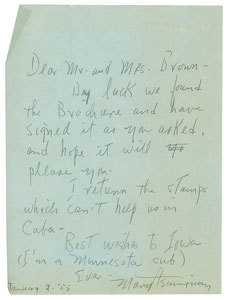 Dear Mr. and Mrs. Brown-
By luck we found
the Brochure and have
signed it as you asked,
and hope it will
please you.
I return the stamps
which can't help us in
Cuba-
Best wishes to Iowa
(I'm a Minnesota cub)
Ever
Mary Hemingway
January 2. '55